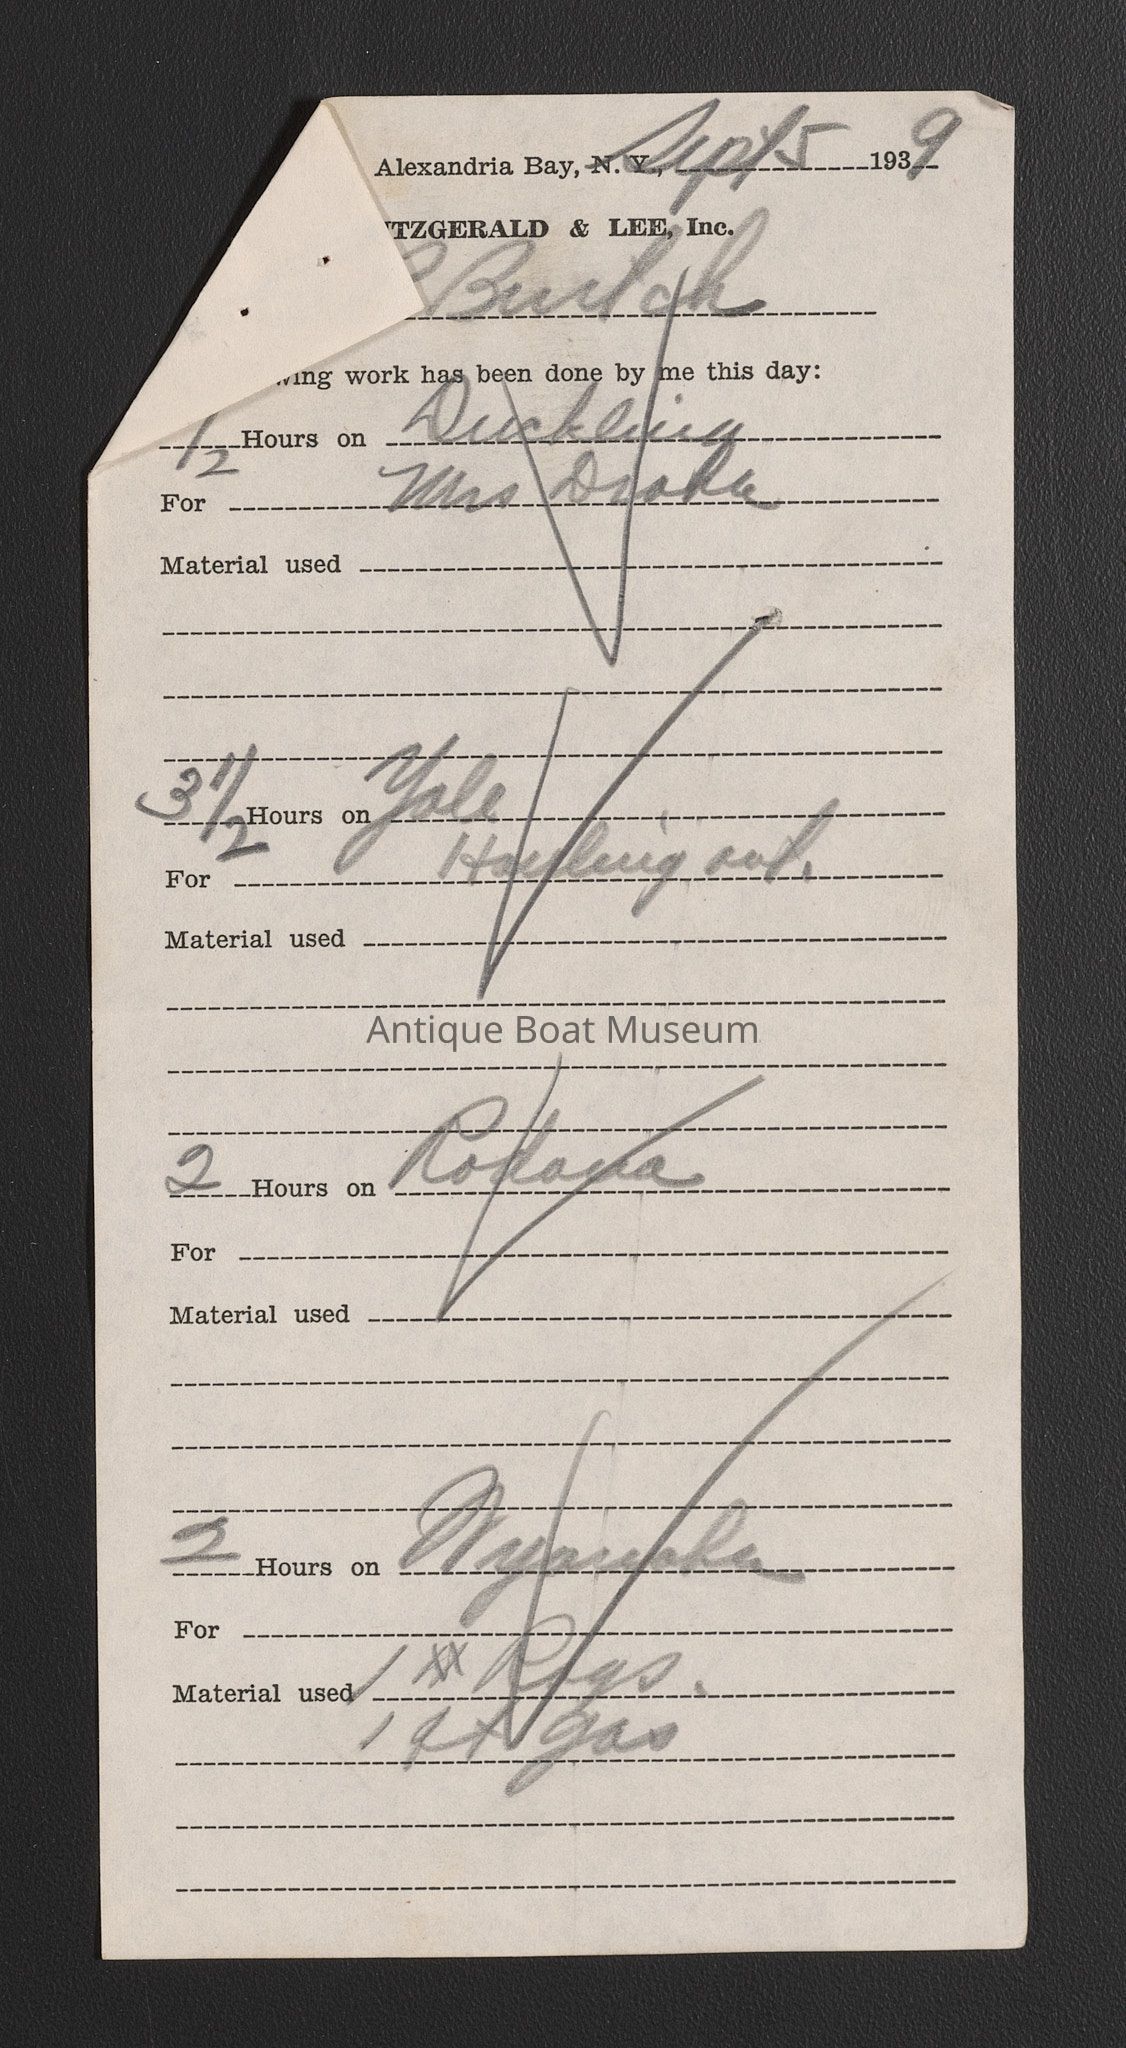 Alexandria Bay, N. Y., Sept 5 1939
ITZGERALD & LEE, Inc.
wing work has been done by me this day:
1/2 Hours on Duckling
For Mrs Drake
Material used
3 1/2 Hours on Yale
For Hauling out.
Material used
Antique Boat Museum
2 Hours on
For
Material used
2 Hours on
For
Material used 1 # Rags.
1 qt gas